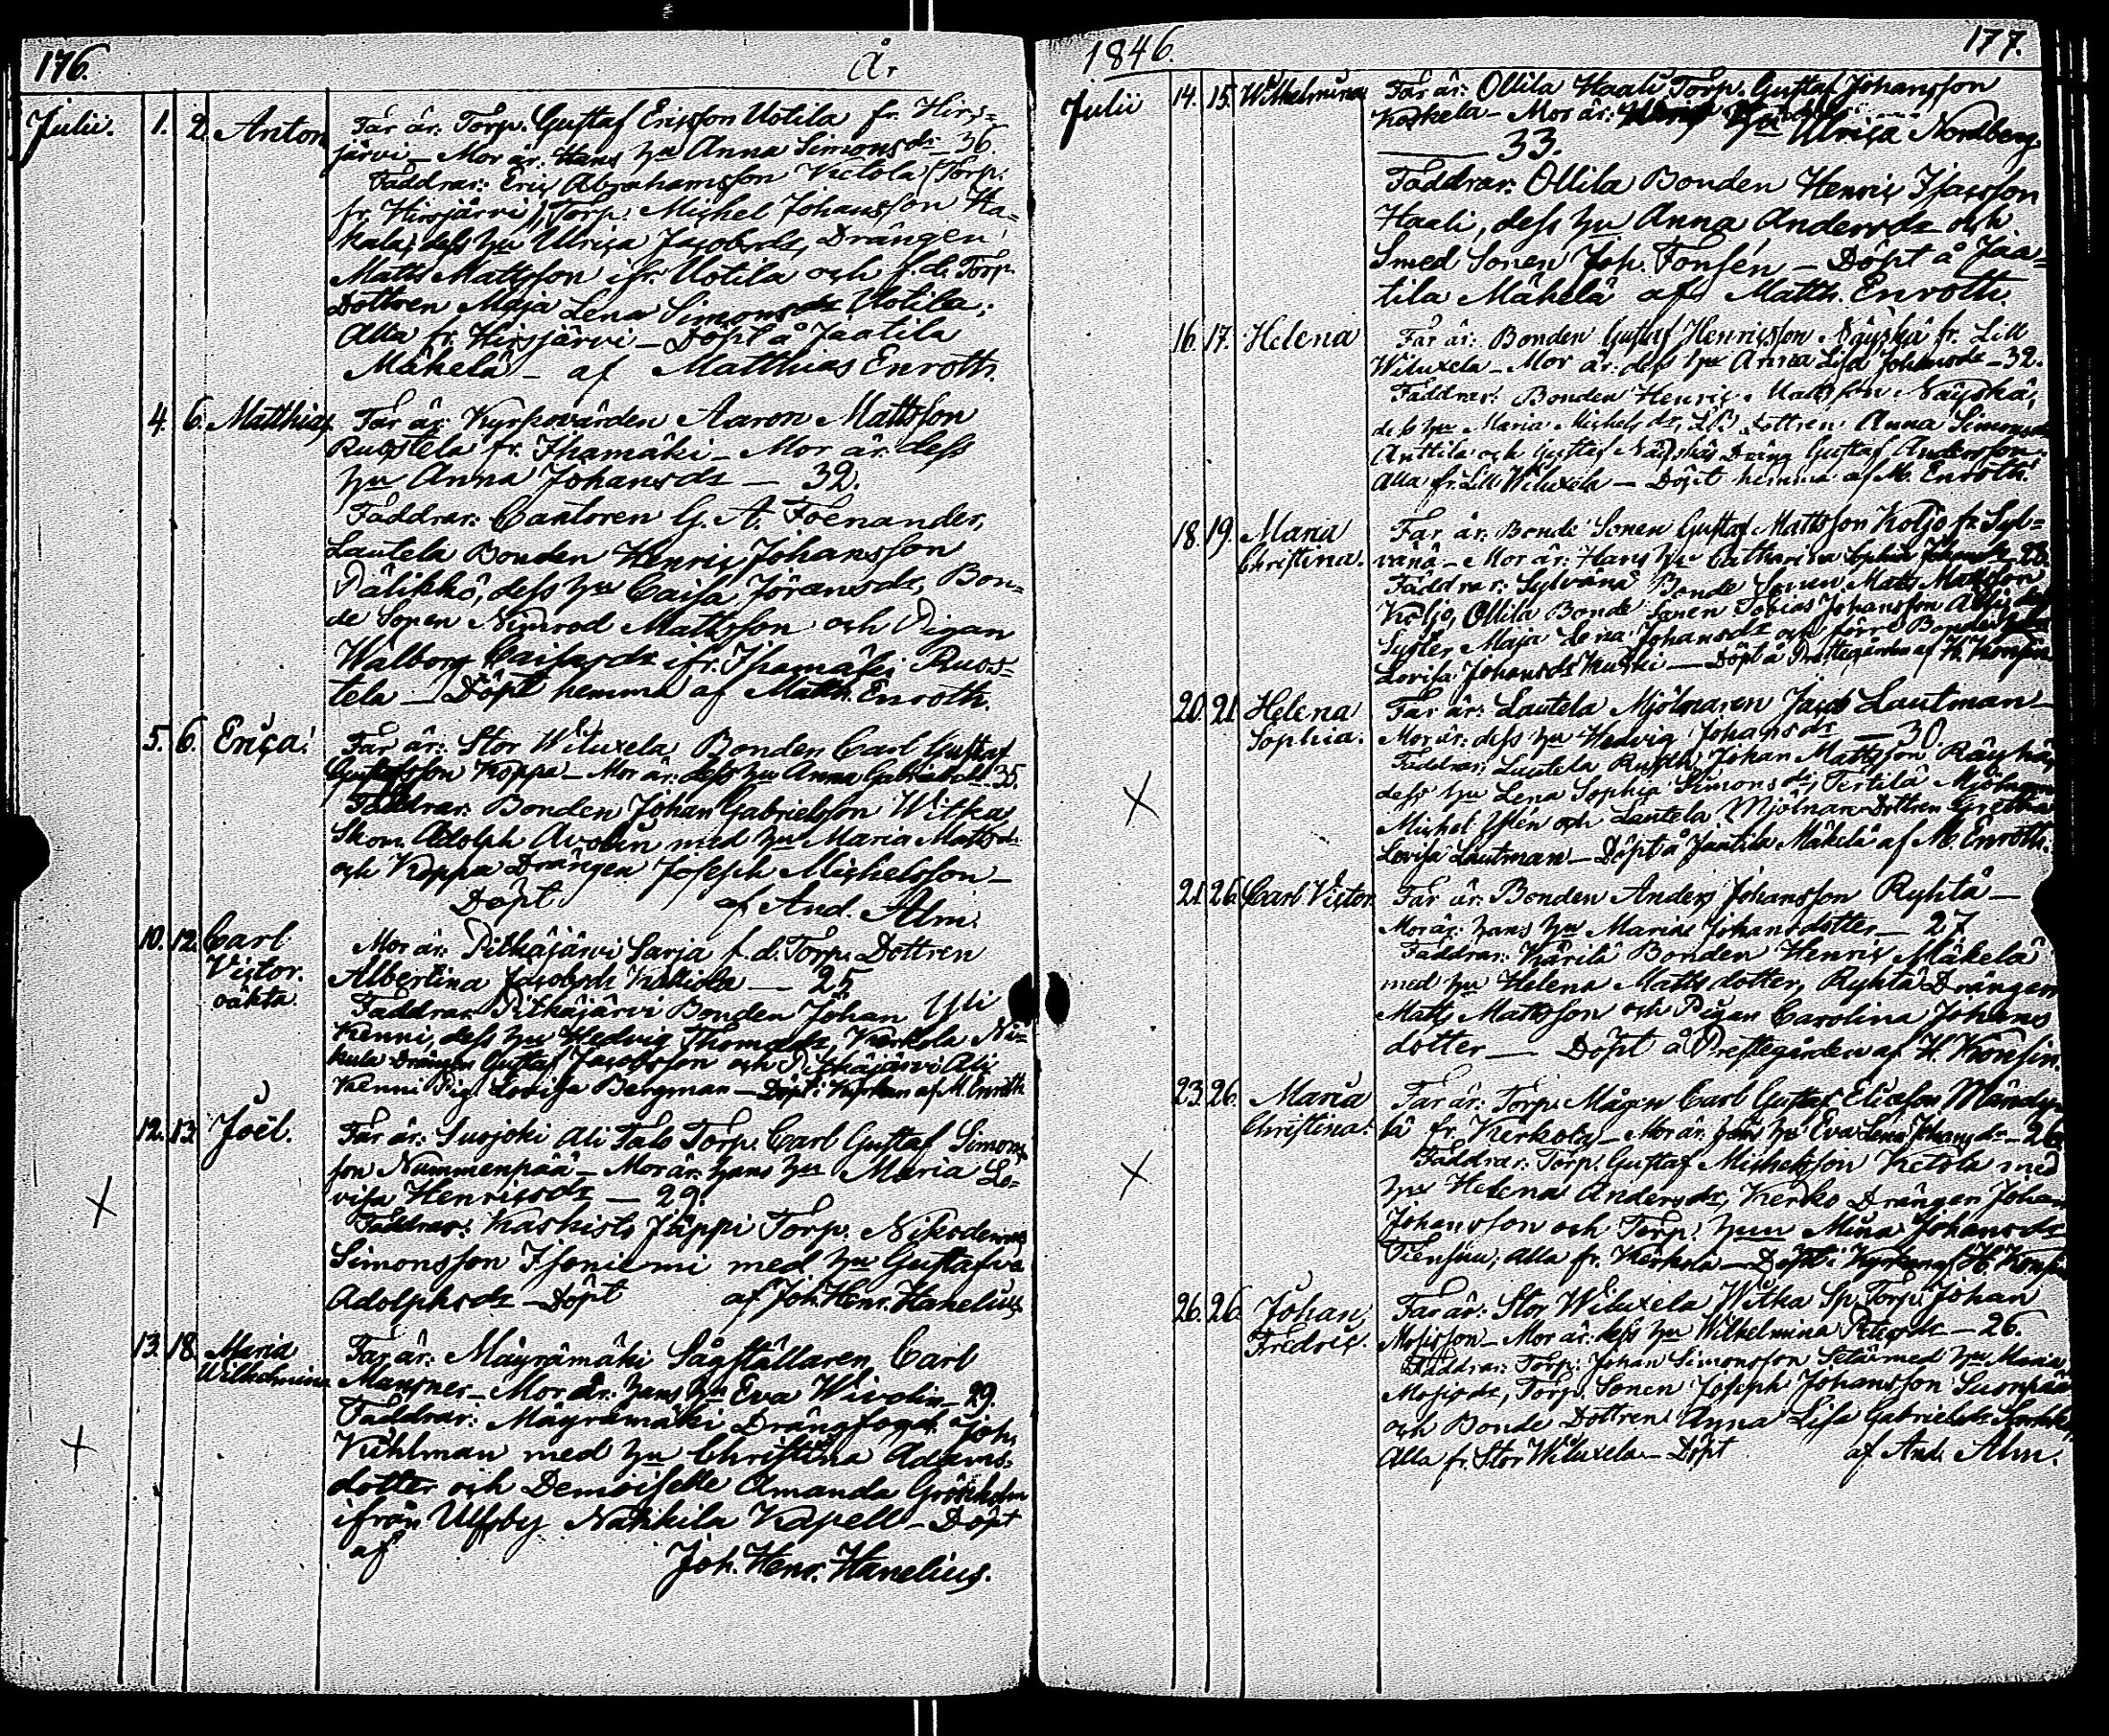 176.
År
Julii.
1. 2. Anton
Far är: Torp. Gustaf Ericsson Uotila fr. Hirs=
järvi – Mor är: Hans hu Anna Simonsdr – 36.
Faddrar: Eric Abrahamsson Ketola (Torp.
fr. Hirsjärvi), Torp. Michel Johansson Ha=
kala, dess hu Ulrica Jacobsdr, Drängen
Matts Mattsson ifr. Uotila och f. d. Torp.
Dottren Maja Lena Simonsdr Uotila;
Alla fr. Hirsjärvi – Döpt å Jaatila
Mäkelä – af Matthias Enroth.
4. 6. Matthias
Far är: Kyrkovärden Aaron Mattsson
Ruostela fr. Ihamäki – Mor är: dess
hu Anna Johansdr – 32.
Faddrar: Cantoren G. A. Foenander,
Lautela Bonden Henric Johansson
Pälikkö, dess hu Caisa Jöransdr, Bon=
de Sonen Nimrod Mattsson och Pigan
Walborg Caisasdr ifr. Ihamäki Ruos=
tela – Döpt hemma af Matth. Enroth.
5. 6. Erica.
Far är: Stor Wiluxela Bonden Carl Gustaf
Gustafsson Koppa – Mor är: dess hu Anna Gabrielsdr 35.
Faddrar: Bonden Johan Gabrielsson Witka,
Skom. Adolph Avolin med hu Maria Mattsdr
och Koppa Drängen Joseph Michelsson –
Döpt af And. Alm.
10. 12. Carl
Victor.
oäkta
Mor är: Pitkäjärvi Sarja f. d. Torp. Dottren
Albertina Jacobsdr Kalliola – 25
Faddrar: Pitkäjärvi Bonden Johan Yli
Kenni, dess hu Hedvig Thomasdr, Kerkola Ni=
kula Drängen Gustaf Jacobsson och Pitkäjärvi Ali
Kenni Pig. Lovisa Bergman – Döpt i Kyrkan af M. Enroth
12. 13. Joël.
Far är: Suojoki Ali Talo Torp. Carl Gustaf Simons
son Nummenpää – Mor är: hans hu Maria Lo=
visa Henricsdr – 29.
Faddrar: Kaskisto Jäppi Torp. Nikodemus
Simonsson Isoniemi med hu Gustafva
Adolphsdr – Döpt af Joh. Henr. Hanelius
13. 18. Maria
Wilhelmina
Far är: Mäyrämäki Sågställaren Carl
Mansner – Mor är: hans hu Eva Wivolin – 29.
Faddrar: Mäyrämäki Drängfogd. Joh.
Kuhlman med hu Christina Adams=
dotter och Demoiselle Amanda Grönholm
ifrån Ulfsby Nakkila Kapell – Döpt
af
Joh. Henr. Hanelius.
1846.
177.
Julii
14. 15. Wilhelmina
Far är: Ollila Haali Torp. Gustaf Johansson
Koskela – Mor är: hu Ulrica Nordberg
– 33.
Faddrar: Ollila Bonden Henric Isacsson
Haali, dess hu Anna Andersdr och
Smed Sonen Joh. Fonsén – Döpt å Jaa=
tila Mäkelä af Matth. Enroth.
16. 17. Helena
Far är: Bonden Gustaf Henricsson Näyskä fr. Lill
Wiluxela – Mor är: dess hu Anna Lisa Johansdr – 32.
Faddrar: Bonden Henric Mattsson Näyskä,
dess hu Maria Michelsdr, Dottren Anna Simonsdr
Anttila och Gustaf Näyskäs Dräng Gustaf Andersson.
Alla fr. Lill Wiluxela – Döpt hemma af M. Enroth.
18. 19. Maria
Christina.
Far är: Bonde Sonen Gustaf Mattsson Koljo fr. Syl=
vänä – Mor är: Hans hu Catharina Sophia Johansdr 28.
Faddrar: Sylvänä Bonde Sonen Matts Mattsson
Koljo, Ollila Bonde Sonen Tobias Johansson
Syster Maja Lena Johansdr och förre Bonde
Lovisa Johansdr Kurki – Döpt å Prestegården af H. Konsin
20. 21. Helena
Sophia.
Far är: Lautela Mjölnaren Jacob Lautman –
Mor är: dess hu Hedvig Johansdr – 30.
Faddrar: Lautela Rusth. Johan Mattsson Räyhä,
dess hu Lena Sophia Simonsdr, Tertilä Mjölnaren
Michel Istén och Lautela Mjölnare Dottren Gretha
Lovisa Lautman – Döpt å Jaatila Mäkelä af M. Enroth.
21. 26. Carl Victor
Far är: Bonden Anders Johansson Ryhtä –
Mor är: hans hu Maria Johansdotter – 27
Faddrar: Käritä Bonden Henric Mäkelä
med hu Helena Mattsdotter, Ryhtä Drängen
Matts Mattsson och Pigan Carolina Johans
dotter – Döpt å Prestegården af H. Konsin.
23. 26. Maria
Christina.
Far är: Torp. Mågen Carl Gustaf Elicesson
lä fr. Kerkola – Mor är: hans hu Eva Lena Johansdr – 26
Faddrar: Torp. Gustaf Michelsson Ketola med
hu Helena Andersdr, Kerko Drängen Johan
Johansson och Torp. hun Mina Johansdr
Tiensuu; alla fr. Kerkola – Döpt i Kyrkan af H. Konsin
26. 26. Johan
Fredric.
Far är: Stor Wiluxela Witka Sp. Torp. Johan
Mosisson – Mor är: dess hu Wilhelmina Petersdr – 26.
Faddrar: Torp. Johan Simonsson Setä med hu Maria
Mosisdr, Torp. Sonen Joseph Johansson Suonpää
och Bonde Dottren Anna Lisa Gabrielsdr
Alla fr. Stor Wiluxela – Döpt af And. Alm.